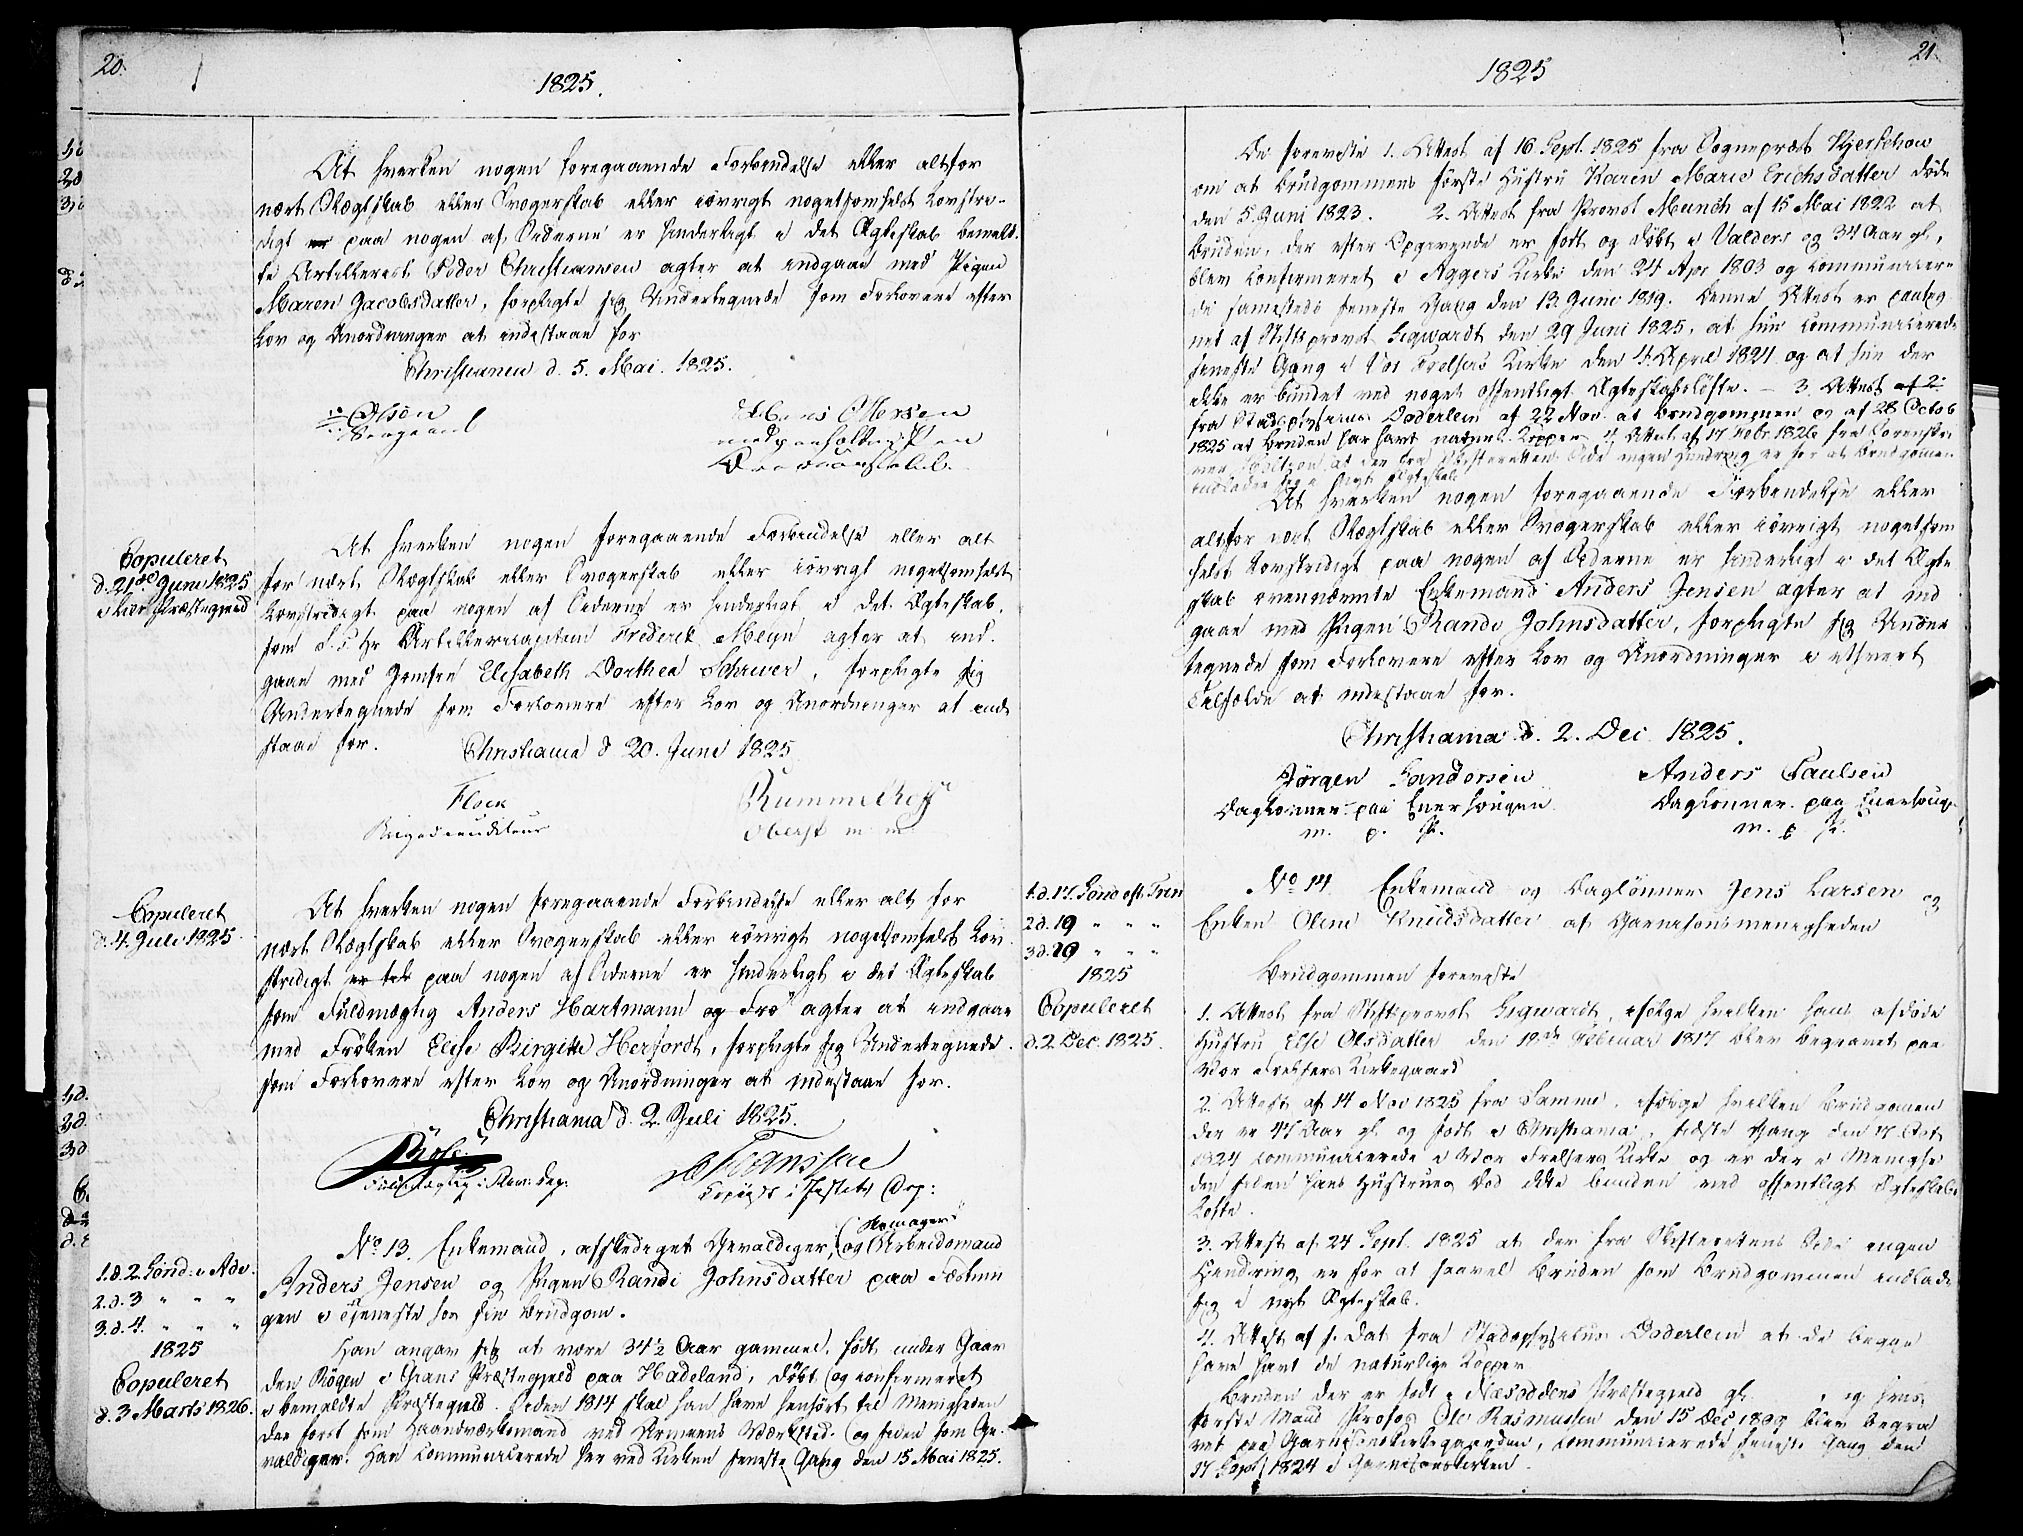 20.
1825.
At hverken nogen foregaaende Forbindelse eller altfor
nært Slægtskab eller Svogerskab eller iøvrigt nogetsomhelst Lovstri-
digt er paa nogen af Siderne er hinderligt i det Ægteskab bemeld-
te Artillerist Peder Christiansen agter at indgaae med Pigen
Maren Jacobsdatter, forpligte sig Undertegnede som Forlovere efter
Lov og Anordninger at indestaae for
Christiania d. 5. Mai. 1825.
Olsön
Sergeant
At hverken nogen foregaaende Forbindelse eller alt
for nært Slægtskab eller Svogerskab eller iövrigt nogetsomhelst
Lovstridigt paa nogen af Siderne er hinderligt i det Ægteskab,
som S. T. Hr Artilleriecapitain Frederik Meyn agter at ind-
gaae med Jomfru Elisabeth Dorthea Schiwer, forpligte sig
Undertegnede som Forlovere efter Lov og Anordninger at inde
staae for.
Christiania d 20. Juni 1825
Copuleret
d. 21de Juni 1825
Flock
Brigadeauditeur
Rummelhoff
Oberst m. m.
Copuleret
d. 4. Juli 1825.
At hverken nogen foregaaende Forbindelse eller alt for
nært Slægtskab eller Svogerskab eller iövrigt nogetsomhelst Lov-
stridigt paa nogen af Siderne er hinderligt i det Ægteskab
som Fuldmægtig Anders Hartmann og Frö agter at indgaae
med Fröken Elise Birgitte Herfordt, forpligte sig Undertegnede
som Forlovere efter Lov og Anordninger at indestaae for.
Christiania d. 2. Juli 1825.
No 13. Enkemand, afskediget Gevaldiger, (og Arbeidsmand
Skomager
Anders Jensen og Pigen Randi Johnsdatter paa Fæstnin
gen i Tjeneste hos sin Brudgom.
1.d. 2 Sönd. i Adv.
2.d. 3 " " "
3.d. 4. " " "
1825
Copuleret
d. 3 Marts 1826.
Han angav sig at være 34½ Aar gammel, födt under Gaar
den Rögen i Grans Præstegjeld paa Hadeland, döbt (og confirmeret
i bemeldte Præstegjeld. Siden 1814 skal han have henhört til Menigheden
der först som Haandværksmand ved Armeens Værksted (og siden som Ge-
valdiger. Han communicerede her ved Kirken seneste Gang den 15 Mai 1825.
21.
1825
De foreviste 1. Attest af 16 Sept. 1825 fra Sognepræst Kjerschow
om at Brudgommens förste Hustru Karen Marie Erichsdatter döde
den 5. Juni 1823. 2. Attest fra Provst Munch af 15 Mai 1822 at
Bruden, der efter Opgivende er födt og döbt i Valders og 34 Aar gl.,
blev confirmeret i Aggers Kirke den 24 Apr 1803 og communicere-
de samesteds seneste Gang den 13. Juni 1819. Denne Attest er paateg
net af Stiftsprovst Sigwardt den 29 Juni 1825, at hun communicerede
seneste Gang i Vor Frelsers Kirke den 4. April 1821 og at hun der
ikke er bundet ved noget offentligt Ægteskabslöfte. – 3. Attest af 2
fra Stadsphysicus Döderlein af 22 Nov. at Brudgommen og af 28 Octob
1825 at Bruden har havt naturl. Kopper 4. Attest af 17 Febr. 1826 fra Sorenskri
At hverken nogen foregaaende Forbindelse eller
altfor nært Slægtskab eller Svogerskab eller iövrigt nogetsom
helst Lovstridigt paa nogen af Siderne er hinderligt i det Ægte
skab ovennævnte Enkemand Anders Jensen agter at ind
gaae med Pigen Randi Johnsdatter, forpligte sig Under
tegnede som Forlovere efter Lov og Anordninger i ethvert
Tilfælde at indestaae for.
Christiania d. 2. Dec 1825.
Jörgen Sandersen
Daglönner paa Enerhougen
m. p. P.
Anders Paulsen
Daglönner paa Enerhoug.
m. p. P.
1.d. 17. Sönd eft. Trin
2.d. 19 " " "
3.d. 20 " " "
1825
Copuleret
d. 2. Dec. 1825.
No 14. Enkemand og Daglönner Jens Larsen og
Enken Oline Knudsdatter af Garnisonsmenigheden
Brudgommen foreviste
1. Attest fra Stiftsprovst Sigwardt, ifölge hvilken hans afdöde
Hustru Else Olsdatter den 19de Februar 1817 blev begravet paa
Vor Frelsers Kirkegaard
2. Attest af 14 Nov 1825 fra Samme, ifölge hvilken Brudgommen
der er 47 Aar gl. og födt i Christiania, sidste Gang den 17 Oct.
1824 communicerede i Vor Frelsers Kirke og er der i Menighe
den siden hans Hustrues Död ikke bunden ved offentligt Ægteskabs
Löfte.
3. Attest af 24 Sept. 1825 at der fra Skifterettens Side ingen
Hindring er for at saavel Bruden som Brudgommen indlade
sig i nyt Ægteskab.
4. Attest af s. Dat. fra Stadsphysicus Döderlein at de begge
have havt de naturlige Kopper
Bruden der er födt i Næsoddens Præstegjeld gl. , og hvis
förste Mand Profos Ole Rasmussen den 15 Dec 1809 blev begra
vet paa Garnisonskirkegaarden, communicerede seneste Gang den
17 Sept 1824 i Garnisonskirken.